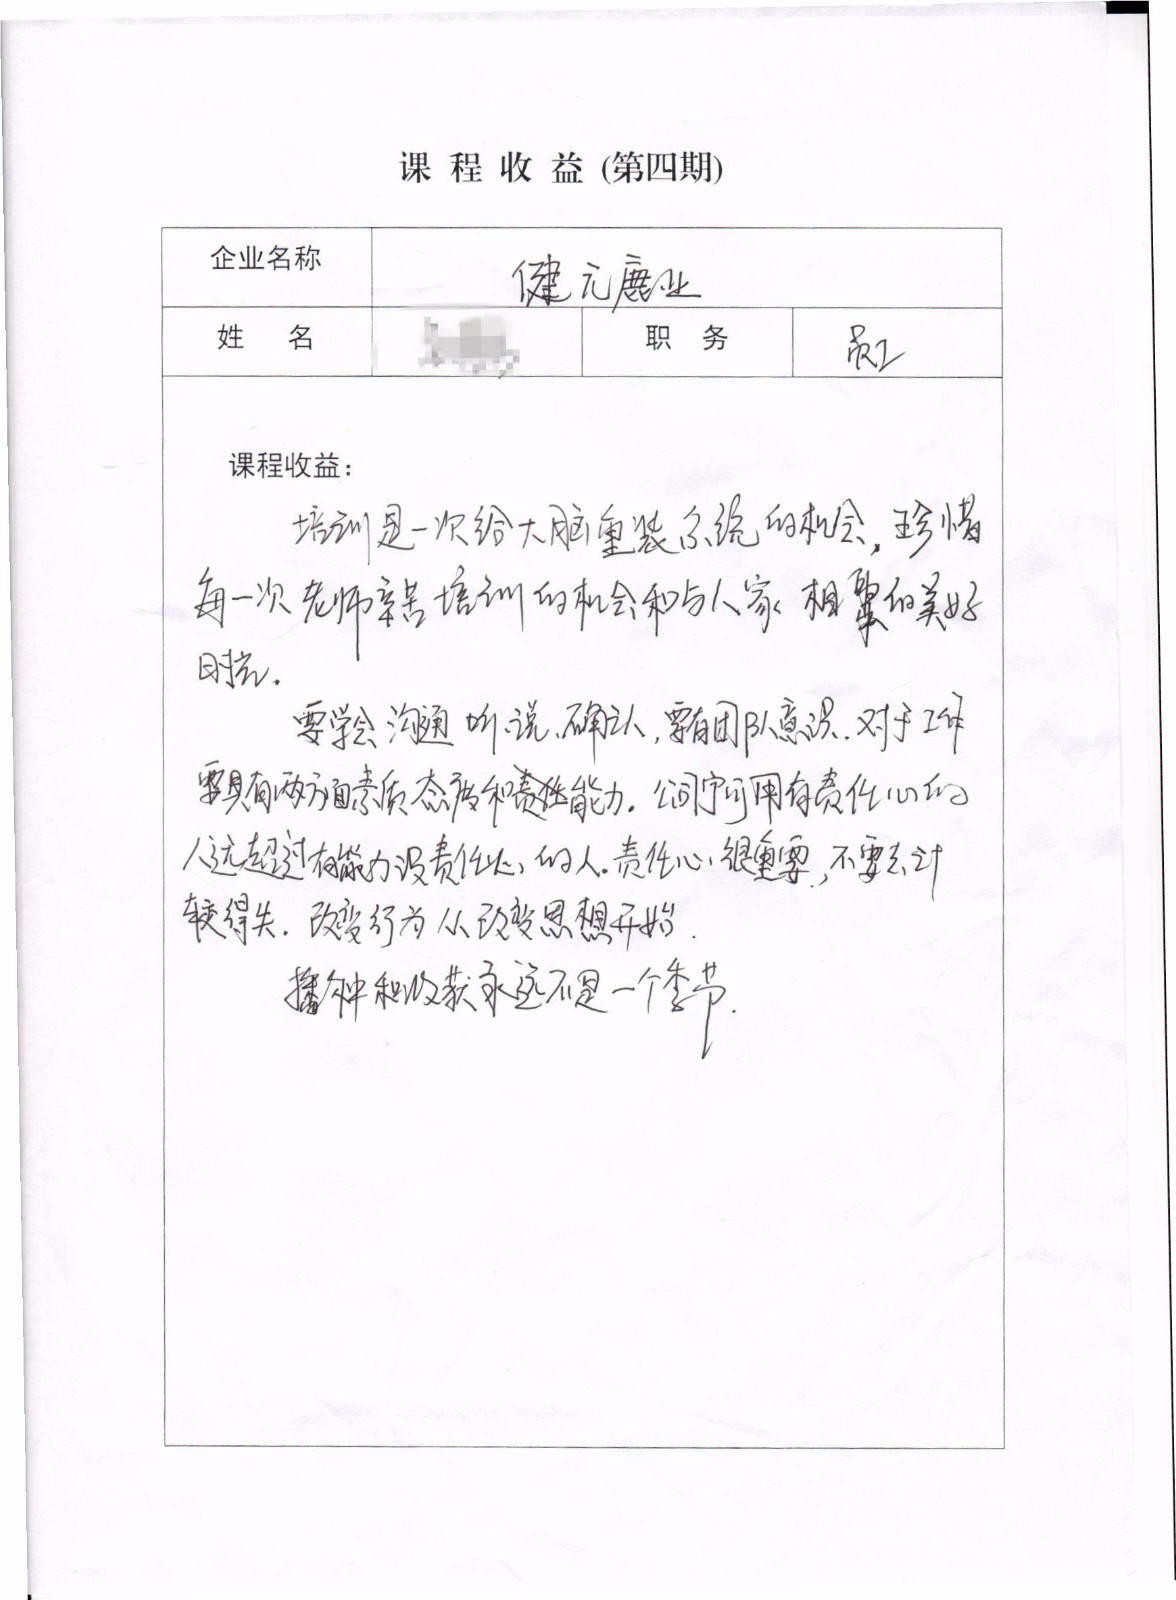 课程收益(第四期)
企业名称 健元鹿业
姓名 职务 员工
课程收益：
培训是一次给大脑重装系统的机会，珍惜
每一次老师辛苦培训的机会和与大家相聚的美好
时光.
要学会沟通 听、说、确认，要有团队意识. 对于工作
要具有两方面素质态度和责任能力. 公司宁可用有责任心的
人远超过有能力没责任心的人。责任心很重要，不要去计
较得失. 改变行为从改变思想开始.
播种和收获永远不是一个季节.